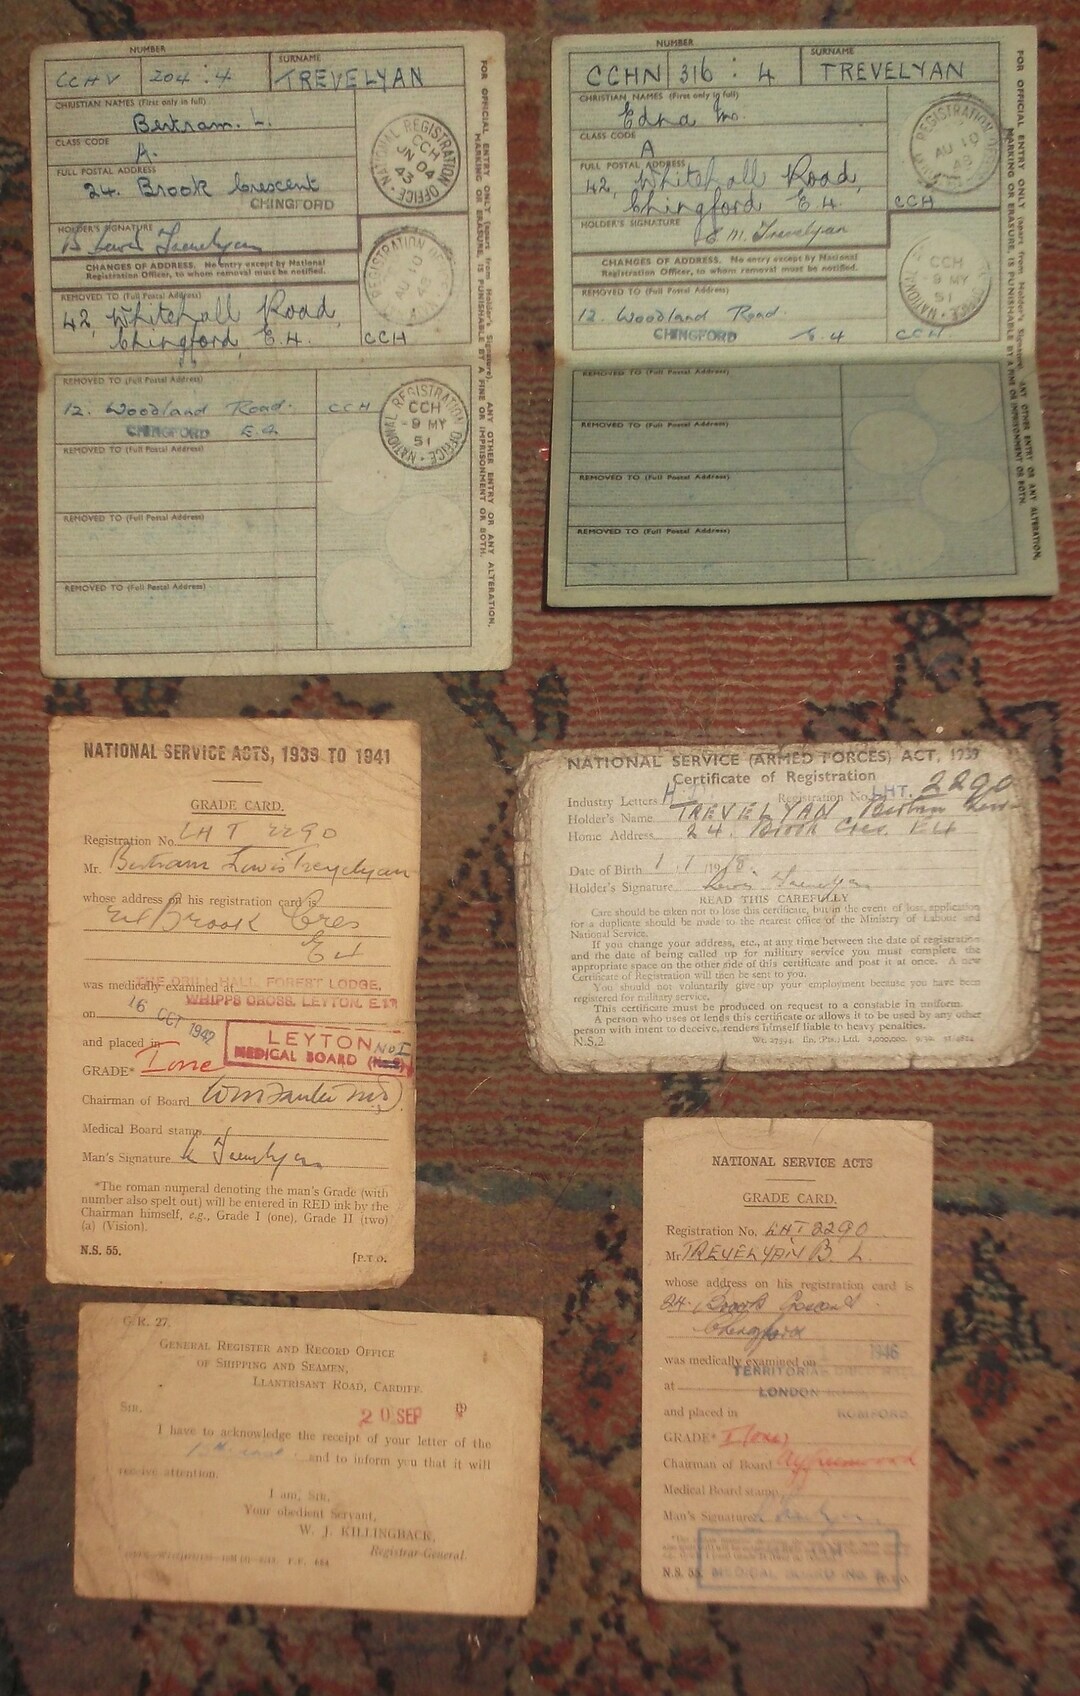 NUMBER SURNAME
CCHV 204 : 4 TREVELYAN
CHRISTIAN NAMES (First only in full)
Bertram. L.
CLASS CODE
A.
FULL POSTAL ADDRESS
24. Brook Crescent
CHINGFORD
NATIONAL REGISTRATION OFFICE
CCH
JN 04
43
HOLDER'S SIGNATURE
B Lewis Trevelyan
CHANGES OF ADDRESS. No entry except by National
Registration Officer, to whom removal must be notified.
REMOVED TO (Full Postal Address)
42, Whitehall Road,
Chingford, E.4.
CCH
REGISTRATION
AU 10
48
REMOVED TO (Full Postal Address)
12. Woodland Road. CCH
CHINGFORD E.4
NATIONAL REGISTRATION OFFICE
CCH
-9 MY
51
REMOVED TO (Full Postal Address)
REMOVED TO (Full Postal Address)
REMOVED TO (Full Postal Address)
FOR OFFICIAL ENTRY ONLY (apart from Holder's Signature). ANY OTHER ENTRY OR ANY ALTERATION,
MARKING OR ERASURE, IS PUNISHABLE BY A FINE OR IMPRISONMENT OR BOTH.
NUMBER SURNAME
CCHN 316 : 4 TREVELYAN
CHRISTIAN NAMES (First only in full)
Edna M.
CLASS CODE
A
FULL POSTAL ADDRESS
42, Whitehall Road,
Chingford E.4.
REGISTRATION
AU 10
48
CCH
HOLDER'S SIGNATURE
E. M. Trevelyan
CHANGES OF ADDRESS. No entry except by National
Registration Officer, to whom removal must be notified.
REMOVED TO (Full Postal Address)
12. Woodland Road.
CHINGFORD E.4
CCH
9 MY
51
CCH.
REMOVED TO (Full Postal Address)
REMOVED TO (Full Postal Address)
REMOVED TO (Full Postal Address)
REMOVED TO (Full Postal Address)
FOR OFFICIAL ENTRY ONLY (apart from Holder's Signature). ANY OTHER ENTRY OR ANY ALTERATION,
MARKING OR ERASURE, IS PUNISHABLE BY A FINE OR IMPRISONMENT OR BOTH.
NATIONAL SERVICE ACTS, 1939 TO 1941
GRADE CARD.
Registration No. LHT 2290
Mr. Bertram Lewis Trevelyan
whose address on his registration card is
24 Brook Cres
E4
was medically examined at THE DRILL HALL, FOREST LODGE,
WHIPPS CROSS, LEYTON. E.11
on 16 OCT 1942
and placed in
LEYTON No I
MEDICAL BOARD
GRADE* I one
Chairman of Board
Medical Board stamp
Man's Signature L Trevelyan
*The roman numeral denoting the man's Grade (with
number also spelt out) will be entered in RED ink by the
Chairman himself, e.g., Grade I (one), Grade II (two)
(a) (Vision).
N.S. 55. [P.T.O.
NATIONAL SERVICE (ARMED FORCES) ACT, 1939
Certificate of Registration
Industry Letters H Registration No. LHT. 2290
Holder's Name TREVELYAN Bertram Lewis
Home Address 24. Brook Cres. E4
Date of Birth 1 7 1918.
Holder's Signature Lewis Trevelyan
READ THIS CAREFULLY
Care should be taken not to lose this certificate, but in the event of loss, application
for a duplicate should be made to the nearest office of the Ministry of Labour and
National Service.
If you change your address, etc., at any time between the date of registration
and the date of being called up for military service you must complete the
appropriate space on the other side of this certificate and post it at once. A new
Certificate of Registration will then be sent to you.
You should not voluntarily give up your employment because you have been
registered for military service.
This certificate must be produced on request to a constable in uniform.
A person who uses or lends this certificate or allows it to be used by any other
person with intent to deceive, renders himself liable to heavy penalties.
N.S.2
NATIONAL SERVICE ACTS
GRADE CARD.
Registration No. LHT 2290
Mr TREVELYAN B. L.
whose address on his registration card is
24. Brook Crescent
Chingford
was medically examined on 1946
at TERRITORIAL DRILL HALL
LONDON
and placed in ROMFORD
GRADE* I (one)
Chairman of Board
Medical Board stamp
Man's Signature
N.S. 55 MEDICAL BOARD NO.
G.R. 27.
GENERAL REGISTER AND RECORD OFFICE
OF SHIPPING AND SEAMEN,
LLANTRISANT ROAD, CARDIFF.
SIR, 20 SEP 19
I have to acknowledge the receipt of your letter of the
and to inform you that it will
receive attention.
I am, Sir,
Your obedient Servant,
W. J. KILLINGBACK,
Registrar-General.